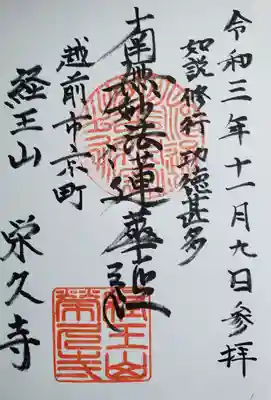 令和三年十一月九日参拝
如説修行功徳甚多
南無妙法蓮華経
越前市京町
経王山 栄久寺
経王山
榮久寺